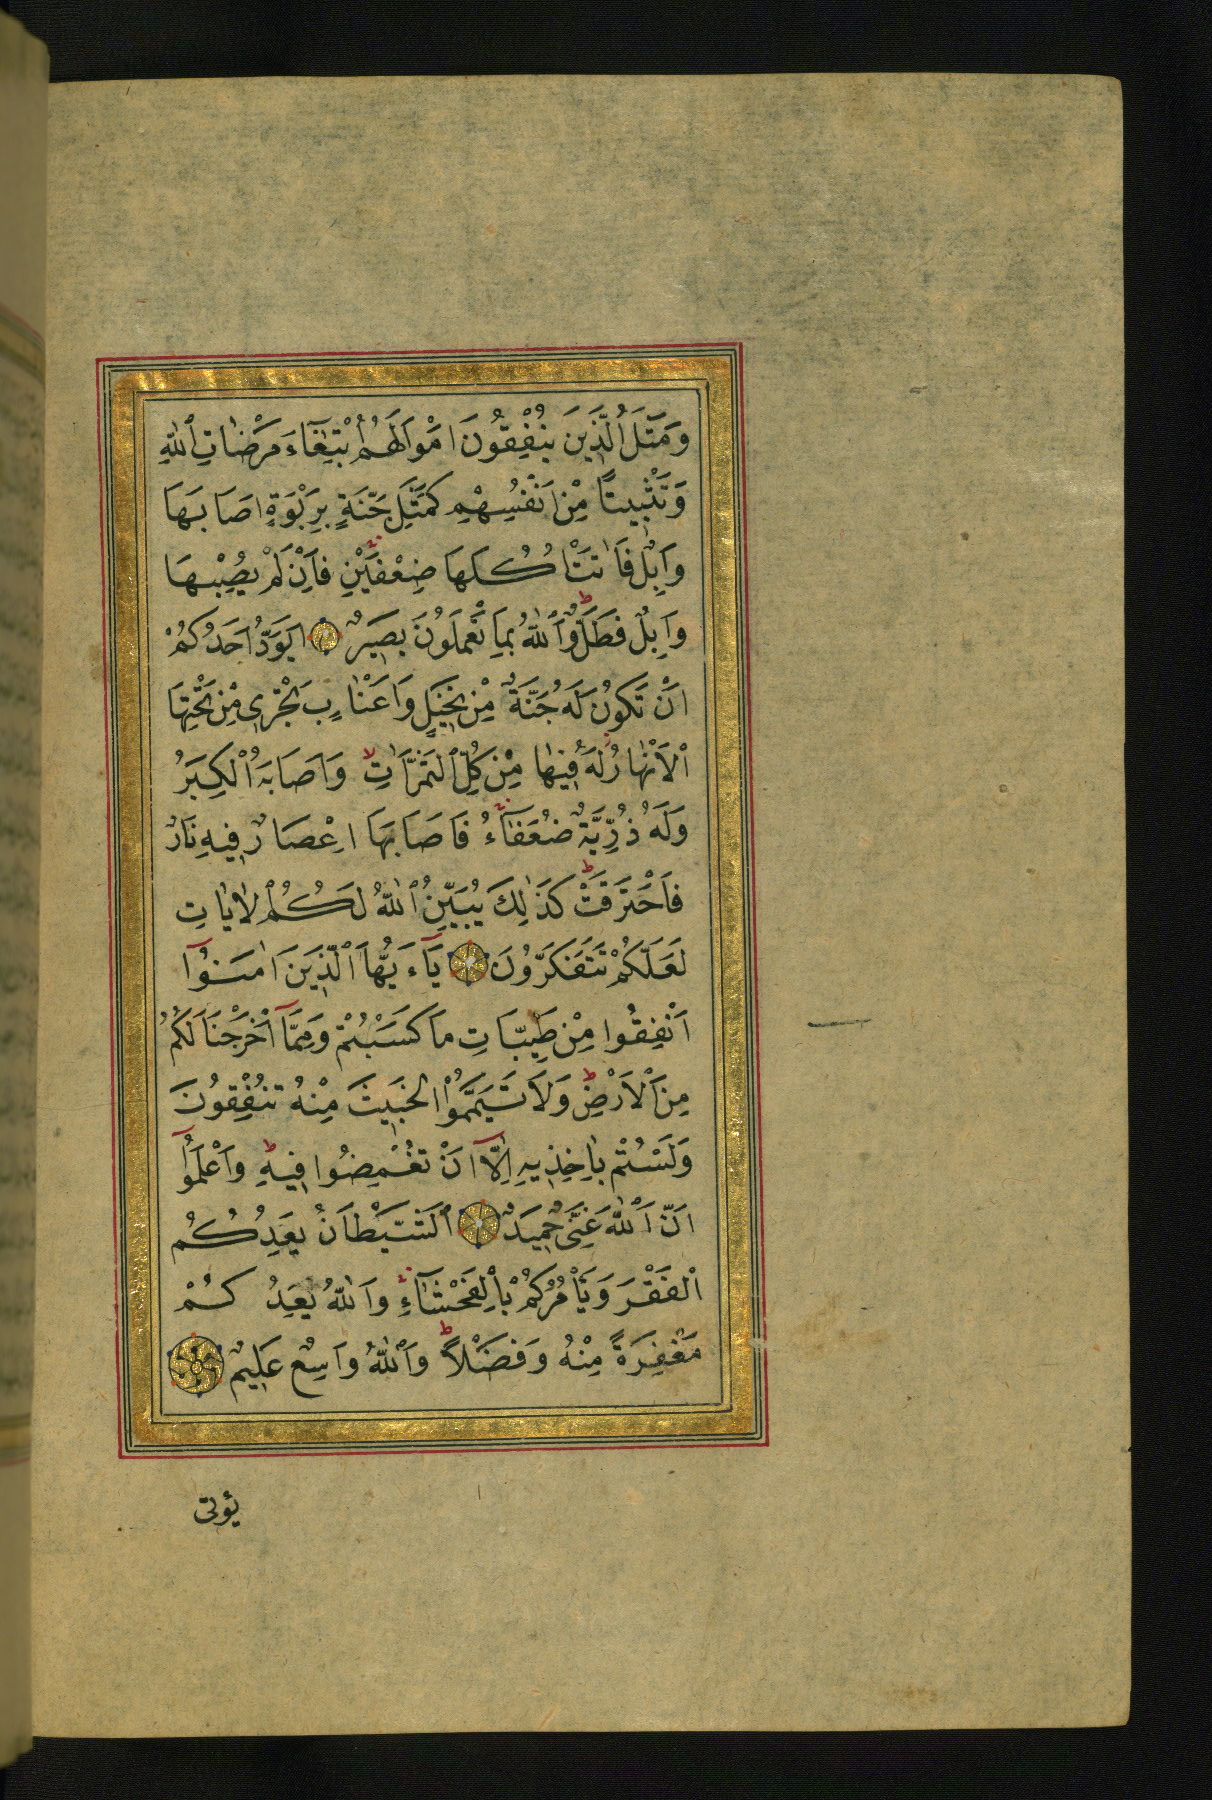 وَمَثَلُ الَّذِينَ يُنْفِقُونَ اَمْوَالَهُمُ ابْتِغَٓاءَ مَرْضَاتِ اللّٰهِ
وَتَثْبِيتًا مِنْ اَنْفُسِهِمْ كَمَثَلِ جَنَّةٍ بِرَبْوَةٍ اَصَابَهَا
وَابِلٌ فَاٰتَتْ اُكُلَهَا ضِعْفَيْنِ فَاِنْ لَمْ يُصِبْهَا
وَابِلٌ فَطَلٌّ وَاللّٰهُ بِمَا تَعْمَلُونَ بَصِيرٌ اَيَوَدُّ اَحَدُكُمْ
اَنْ تَكُونَ لَهُ جَنَّةٌ مِنْ نَخِيلٍ وَاَعْنَابٍ تَجْرِى مِنْ تَحْتِهَا
الْاَنْهَارُ لَهُ فِيهَا مِنْ كُلِّ الثَّمَرَاتِ وَاَصَابَهُ الْكِبَرُ
وَلَهُ ذُرِّيَّةٌ ضُعَفَٓاءُ فَاَصَابَهَا اِعْصَارٌ فِيهِ نَارٌ
فَاحْتَرَقَتْ كَذٰلِكَ يُبَيِّنُ اللّٰهُ لَكُمُ الْاٰيَاتِ
لَعَلَّكُمْ تَتَفَكَّرُونَ يَٓاءَيُّهَا الَّذِينَ اٰمَنُٓوا
اَنْفِقُوا مِنْ طَيِّبَاتِ مَا كَسَبْتُمْ وَمِمَّٓا اَخْرَجْنَا لَكُمْ
مِنَ الْاَرْضِ وَلَا تَيَمَّمُوا الْخَبِيثَ مِنْهُ تُنْفِقُونَ
وَلَسْتُمْ بِاٰخِذِيهِ اِلَّٓا اَنْ تُغْمِضُوا فِيهِ وَاعْلَمُٓوا
اَنَّ اللّٰهَ غَنِىٌّ حَمِيدٌ اَلشَّيْطَانُ يَعِدُكُمُ
الْفَقْرَ وَيَاْمُرُكُمْ بِالْفَحْشَٓاءِ وَاللّٰهُ يَعِدُكُمْ
مَغْفِرَةً مِنْهُ وَفَضْلًا وَاللّٰهُ وَاسِعٌ عَلِيمٌ
يؤتى